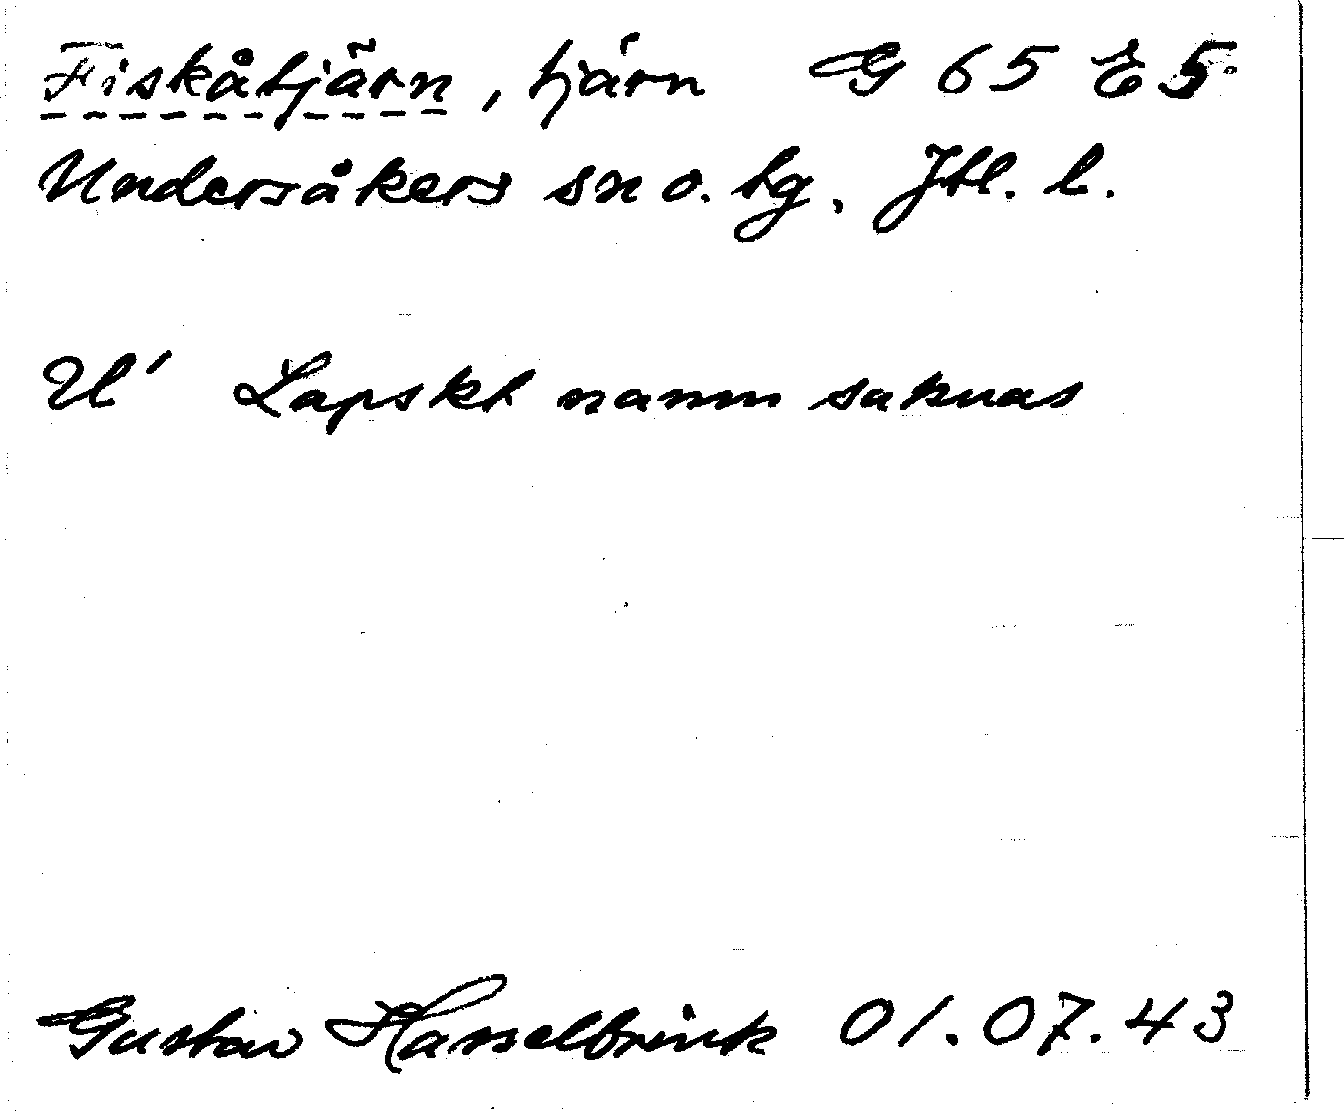 Fiskåtjärn, tjärn G 65 E 5
Undersåkers sn o. tg, Jtl. l.
U' Lapskt namn saknas
Gustav Hasselbrink 01.07.43